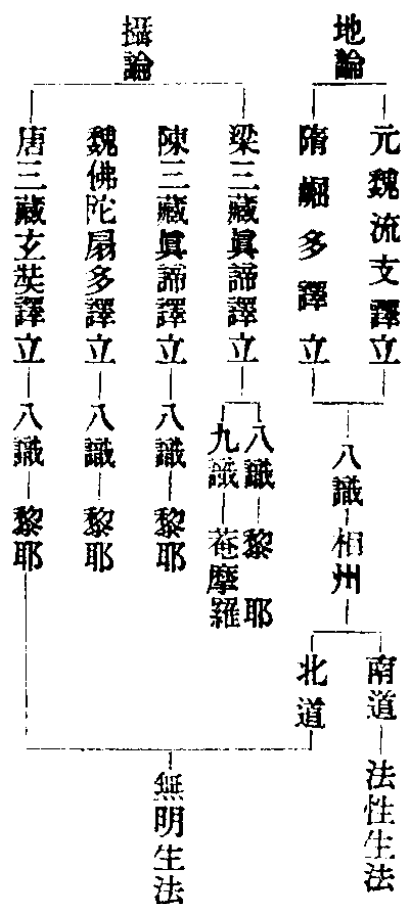 地論
元魏流支譯立
隋崛多譯立
八識
相州
南道
法性生法
北道
攝論
梁三藏眞諦譯立
八識
黎耶
九識
菴摩羅
陳三藏眞諦譯立
八識
黎耶
魏佛陀扇多譯立
八識
黎耶
唐三藏玄奘譯立
八識
黎耶
無明生法